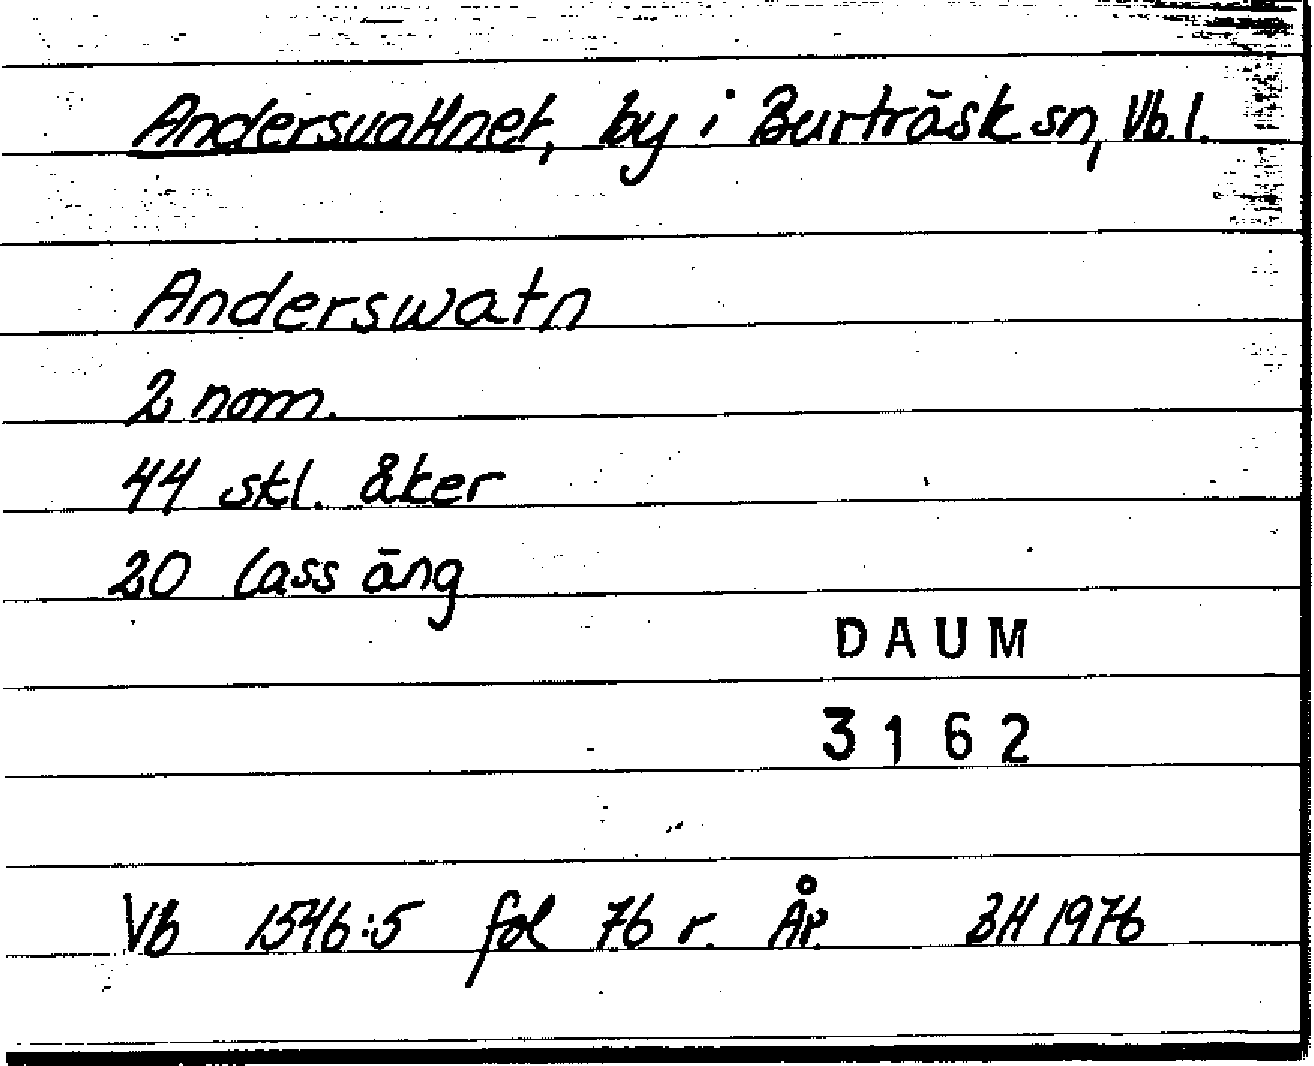 Andersvattnet, by i Burträsk sn, Vb.l.
Anderswatn
2 nom.
44 skl. åker
20 lass äng
DAUM
3162
Vb 1546:5 fol 76 r. Åp. BH 1976